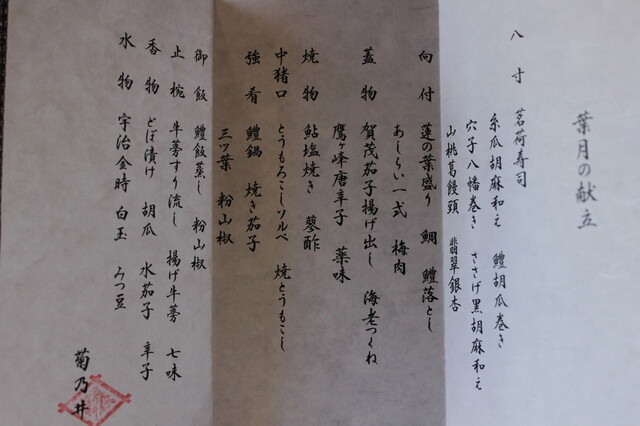 葉月の献立
八寸 茗荷寿司
糸瓜胡麻和え 鱧胡瓜巻き
穴子八幡巻き ささげ黒胡麻和え
山桃葛饅頭 翡翠銀杏
向付 蓮の葉盛り 鯛 鱧落とし
あしらい一式 梅肉
蓋物 賀茂茄子揚げ出し 海老つくね
鷹ヶ峰唐辛子 薬味
焼物 鮎塩焼き 蓼酢
中猪口 とうもろこしソルベ 焼とうもこし
強肴 鱧鍋 焼き茄子
三ツ葉 粉山椒
御飯 鱧飯蒸し 粉山椒
止椀 牛蒡すり流し 揚げ牛蒡 七味
香物 どぼ漬け 胡瓜 水茄子 辛子
水物 宇治金時 白玉 みつ豆
菊乃井